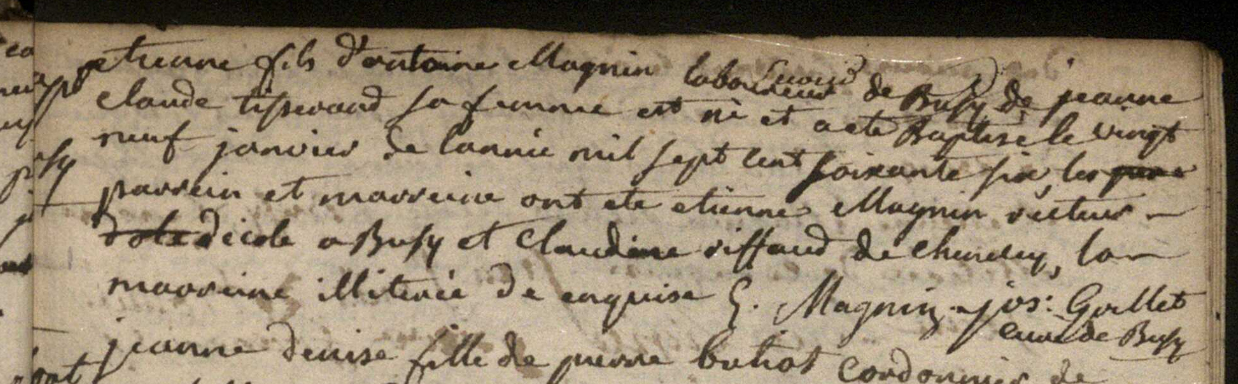 etienne fils d'antoine Magnin laboureur de Busy de jeanne
claude tisserand sa femme est né et a ete Baptisé le vingt
neuf janvier de lannée mil sept cent soixante six, les
parrein et marreine ont ete etienne Magnin recteur
decole a Busy et Claudine riffaud de chenecey, la
marreine illiterée de enquise E. Magnin jos: Guillet
curé de Busy
jeanne denise fille de pierre buhot cordonnier de